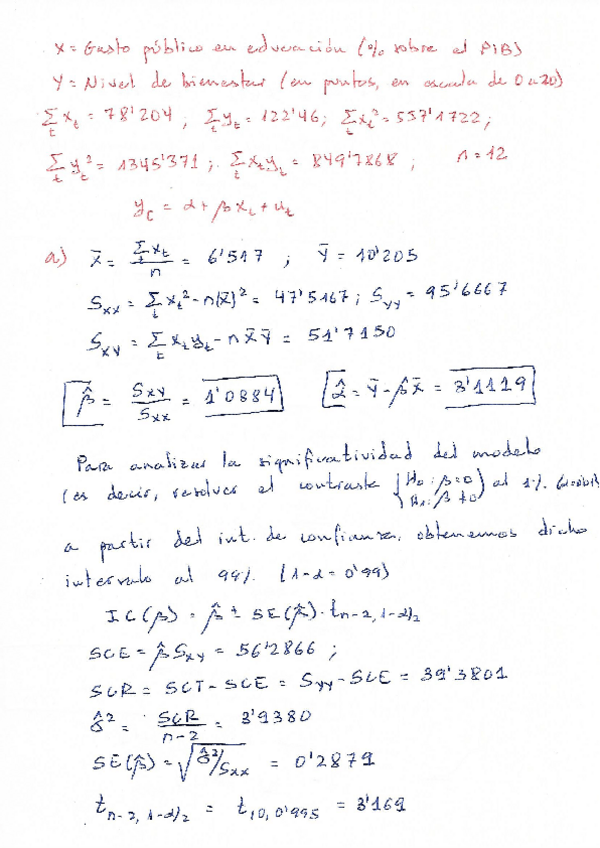 X = Gasto público en educación (% sobre el PIB)
Y = Nivel de bienestar (en puntos, en escala de 0 a 20)
∑_t x_t = 78'204 ; ∑_t y_t = 122'46 ; ∑_t x_t² = 557'1722 ;
∑_t y_t² = 1345'371 ; ∑_t x_t y_t = 849'7868 ; n = 12
y_t = α + β x_t + u_t
a) X̄ = ∑_t x_t / n = 6'517 ; Ȳ = 10'205
S_xx = ∑_t x_t² - n(X̄)² = 47'5167 ; S_yy = 95'6667
S_xy = ∑_t x_t y_t - n X̄ Ȳ = 51'7150
β̂ = S_xy / S_xx = 1'0884 α̂ = Ȳ - β̂ X̄ = 3'1119
Para analizar la significatividad del modelo
(es decir, resolver el contraste { H₀: β = 0 H₁: β ≠ 0 ) al 1%
a partir del int. de confianza, obtenemos dicho
intervalo al 99% (1-α = 0'99)
IC(β) = β̂ ± SE(β̂) · t_{n-2, 1-α/2}
SCE = β̂ S_xy = 56'2866 ;
SCR = SCT - SCE = S_yy - SCE = 39'3801
σ̂² = SCR / n-2 = 3'9380
SE(β̂) = √(σ̂²/S_xx) = 0'2879
t_{n-2, 1-α/2} = t_{10, 0'995} = 3'169